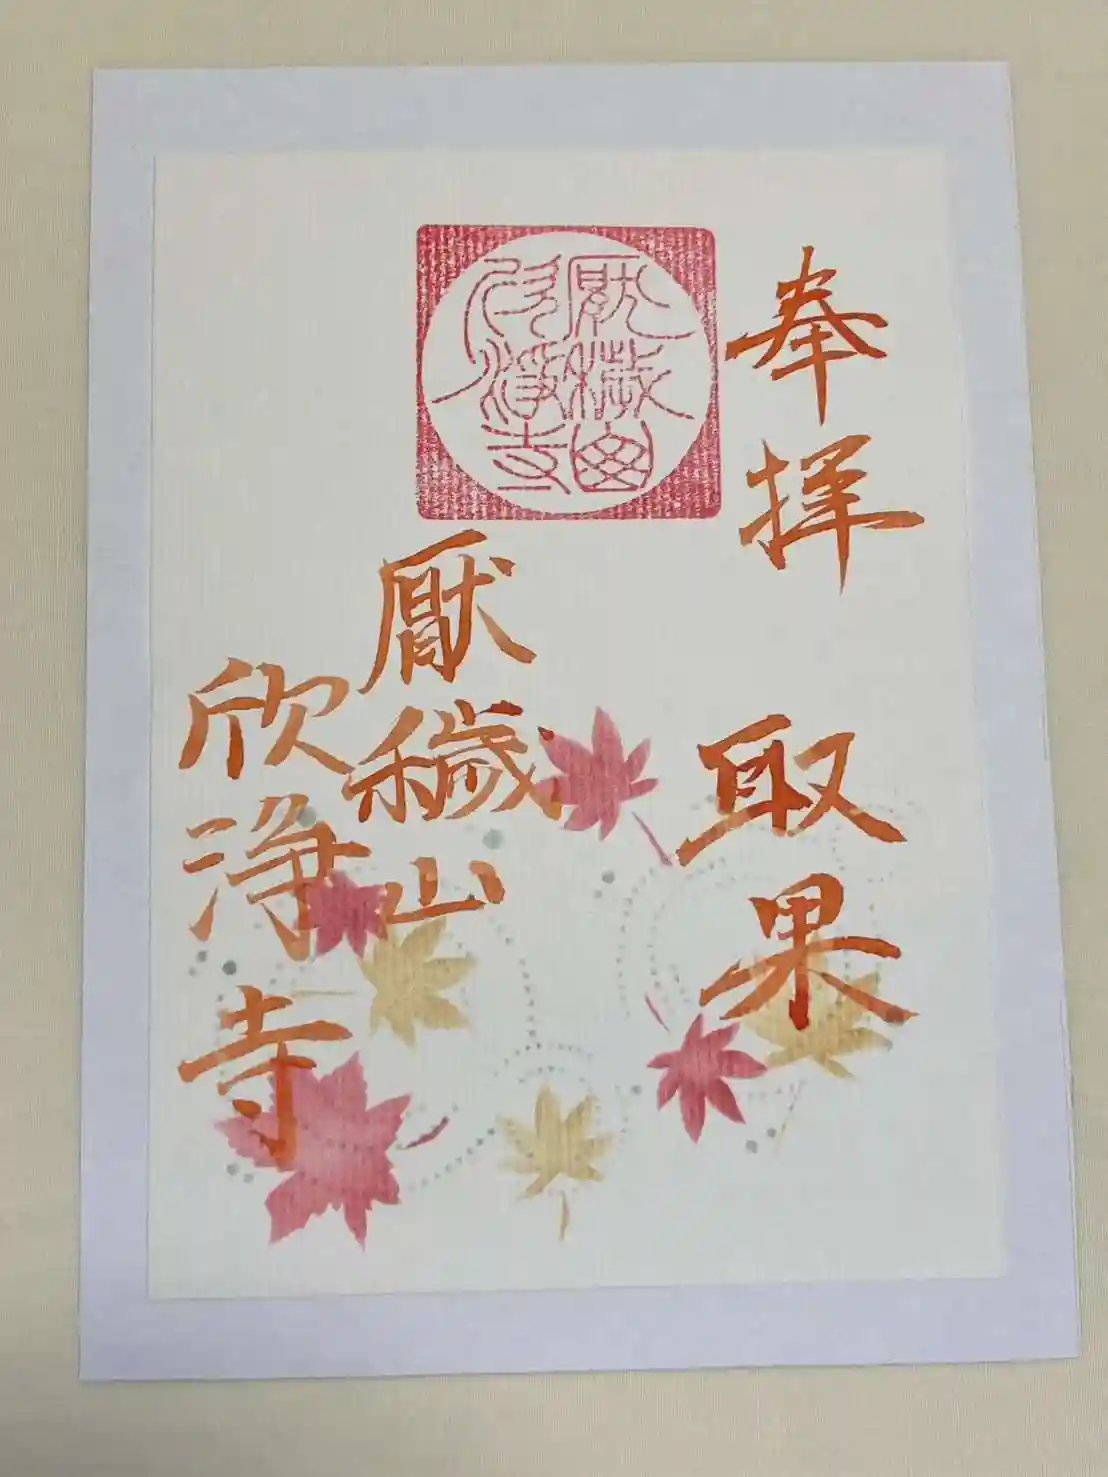 奉拝 取果
厭穢山
欣浄寺
厭穢山
欣浄寺